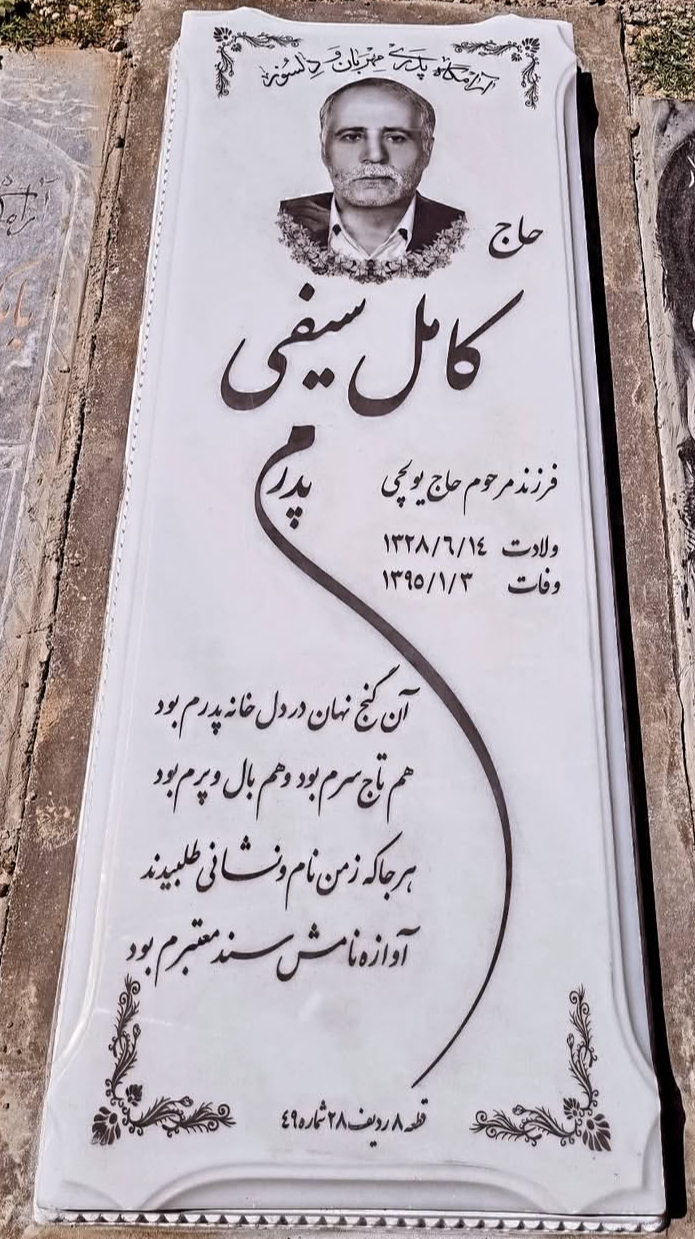 آرامگاه پدری مهربان و دلسوز
حاج
کامل سیفی
پدرم
فرزند مرحوم حاج یولچی
ولادت ۱۳۲۸/۶/۱۴
وفات ۱۳۹۵/۱/۳
آن گنج نهان در دل خانه پدرم بود
هم تاج سرم بود و هم بال و پرم بود
هر جا که ز من نام و نشانی طلبیدند
آوازه نامش سند معتبرم بود
قطعه ۸ ردیف ۲۸ شماره ۴۹